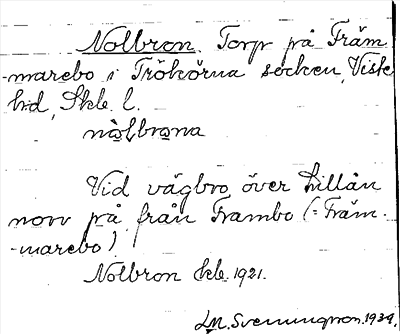 Nolbron. Torp på Främ
-marebo i Trökörna socken, Viste
h:d, Skbl. l.
nol̥brona
Vid vägbro över Lillån
norr på från Frambo (= Främ-
-marebo)
Nolbron Skbl. 1921.
J.M. Svenungsson. 1934.